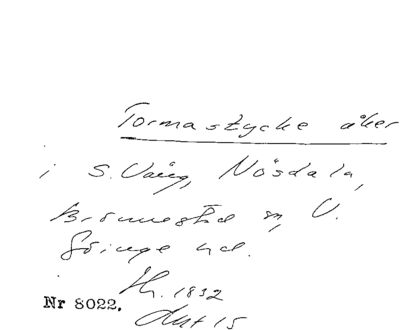 Tormastycke åker
i S. Vång, Nösdala,
Brönnestad sn, V.
Göinge hd.
Th. 1832
Nr 8022.
Akt 15